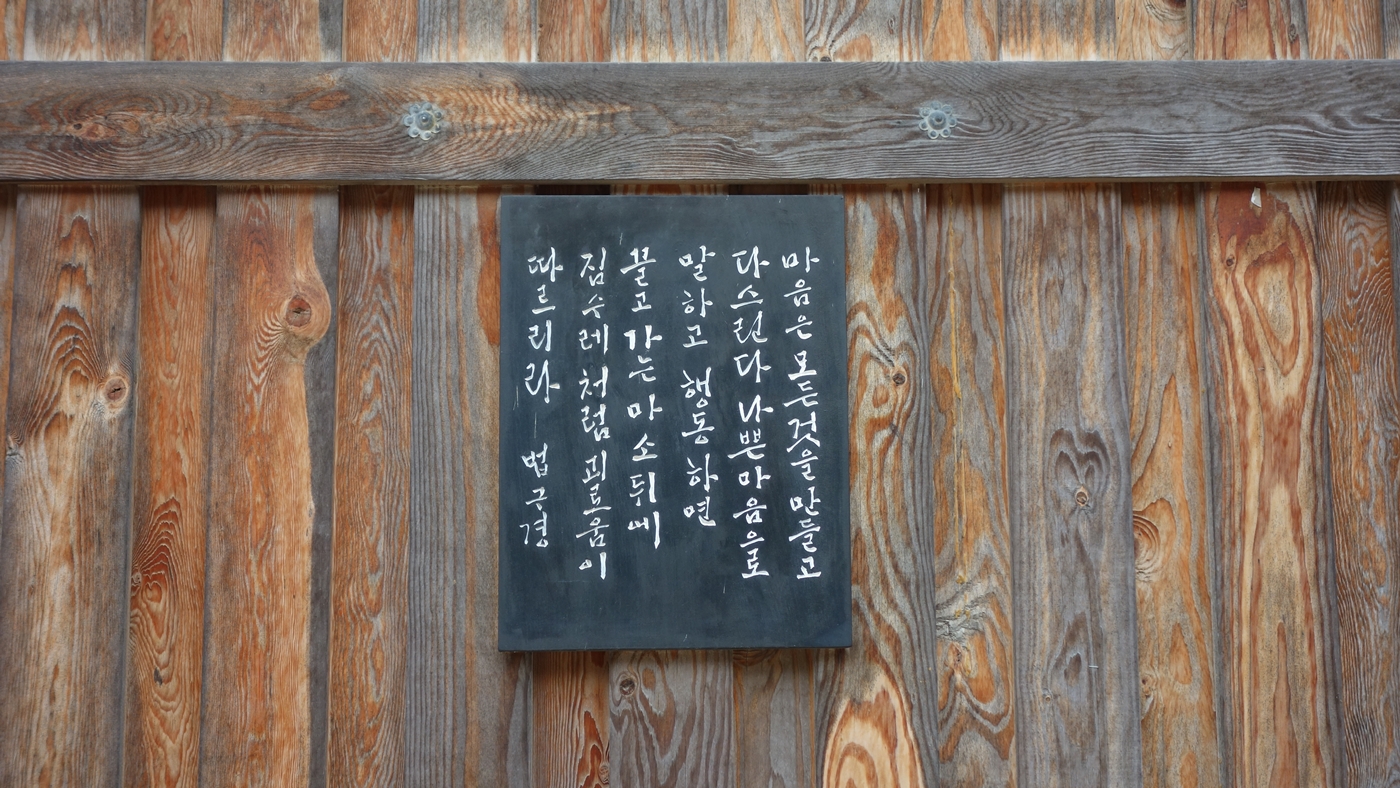 마음은 모든것을 만들고
다스린다 나쁜 마음으로
말하고 행동하면
끌고 가는 마소 뒤에
짐수레처럼 괴로움이
따르리라 - 법구경